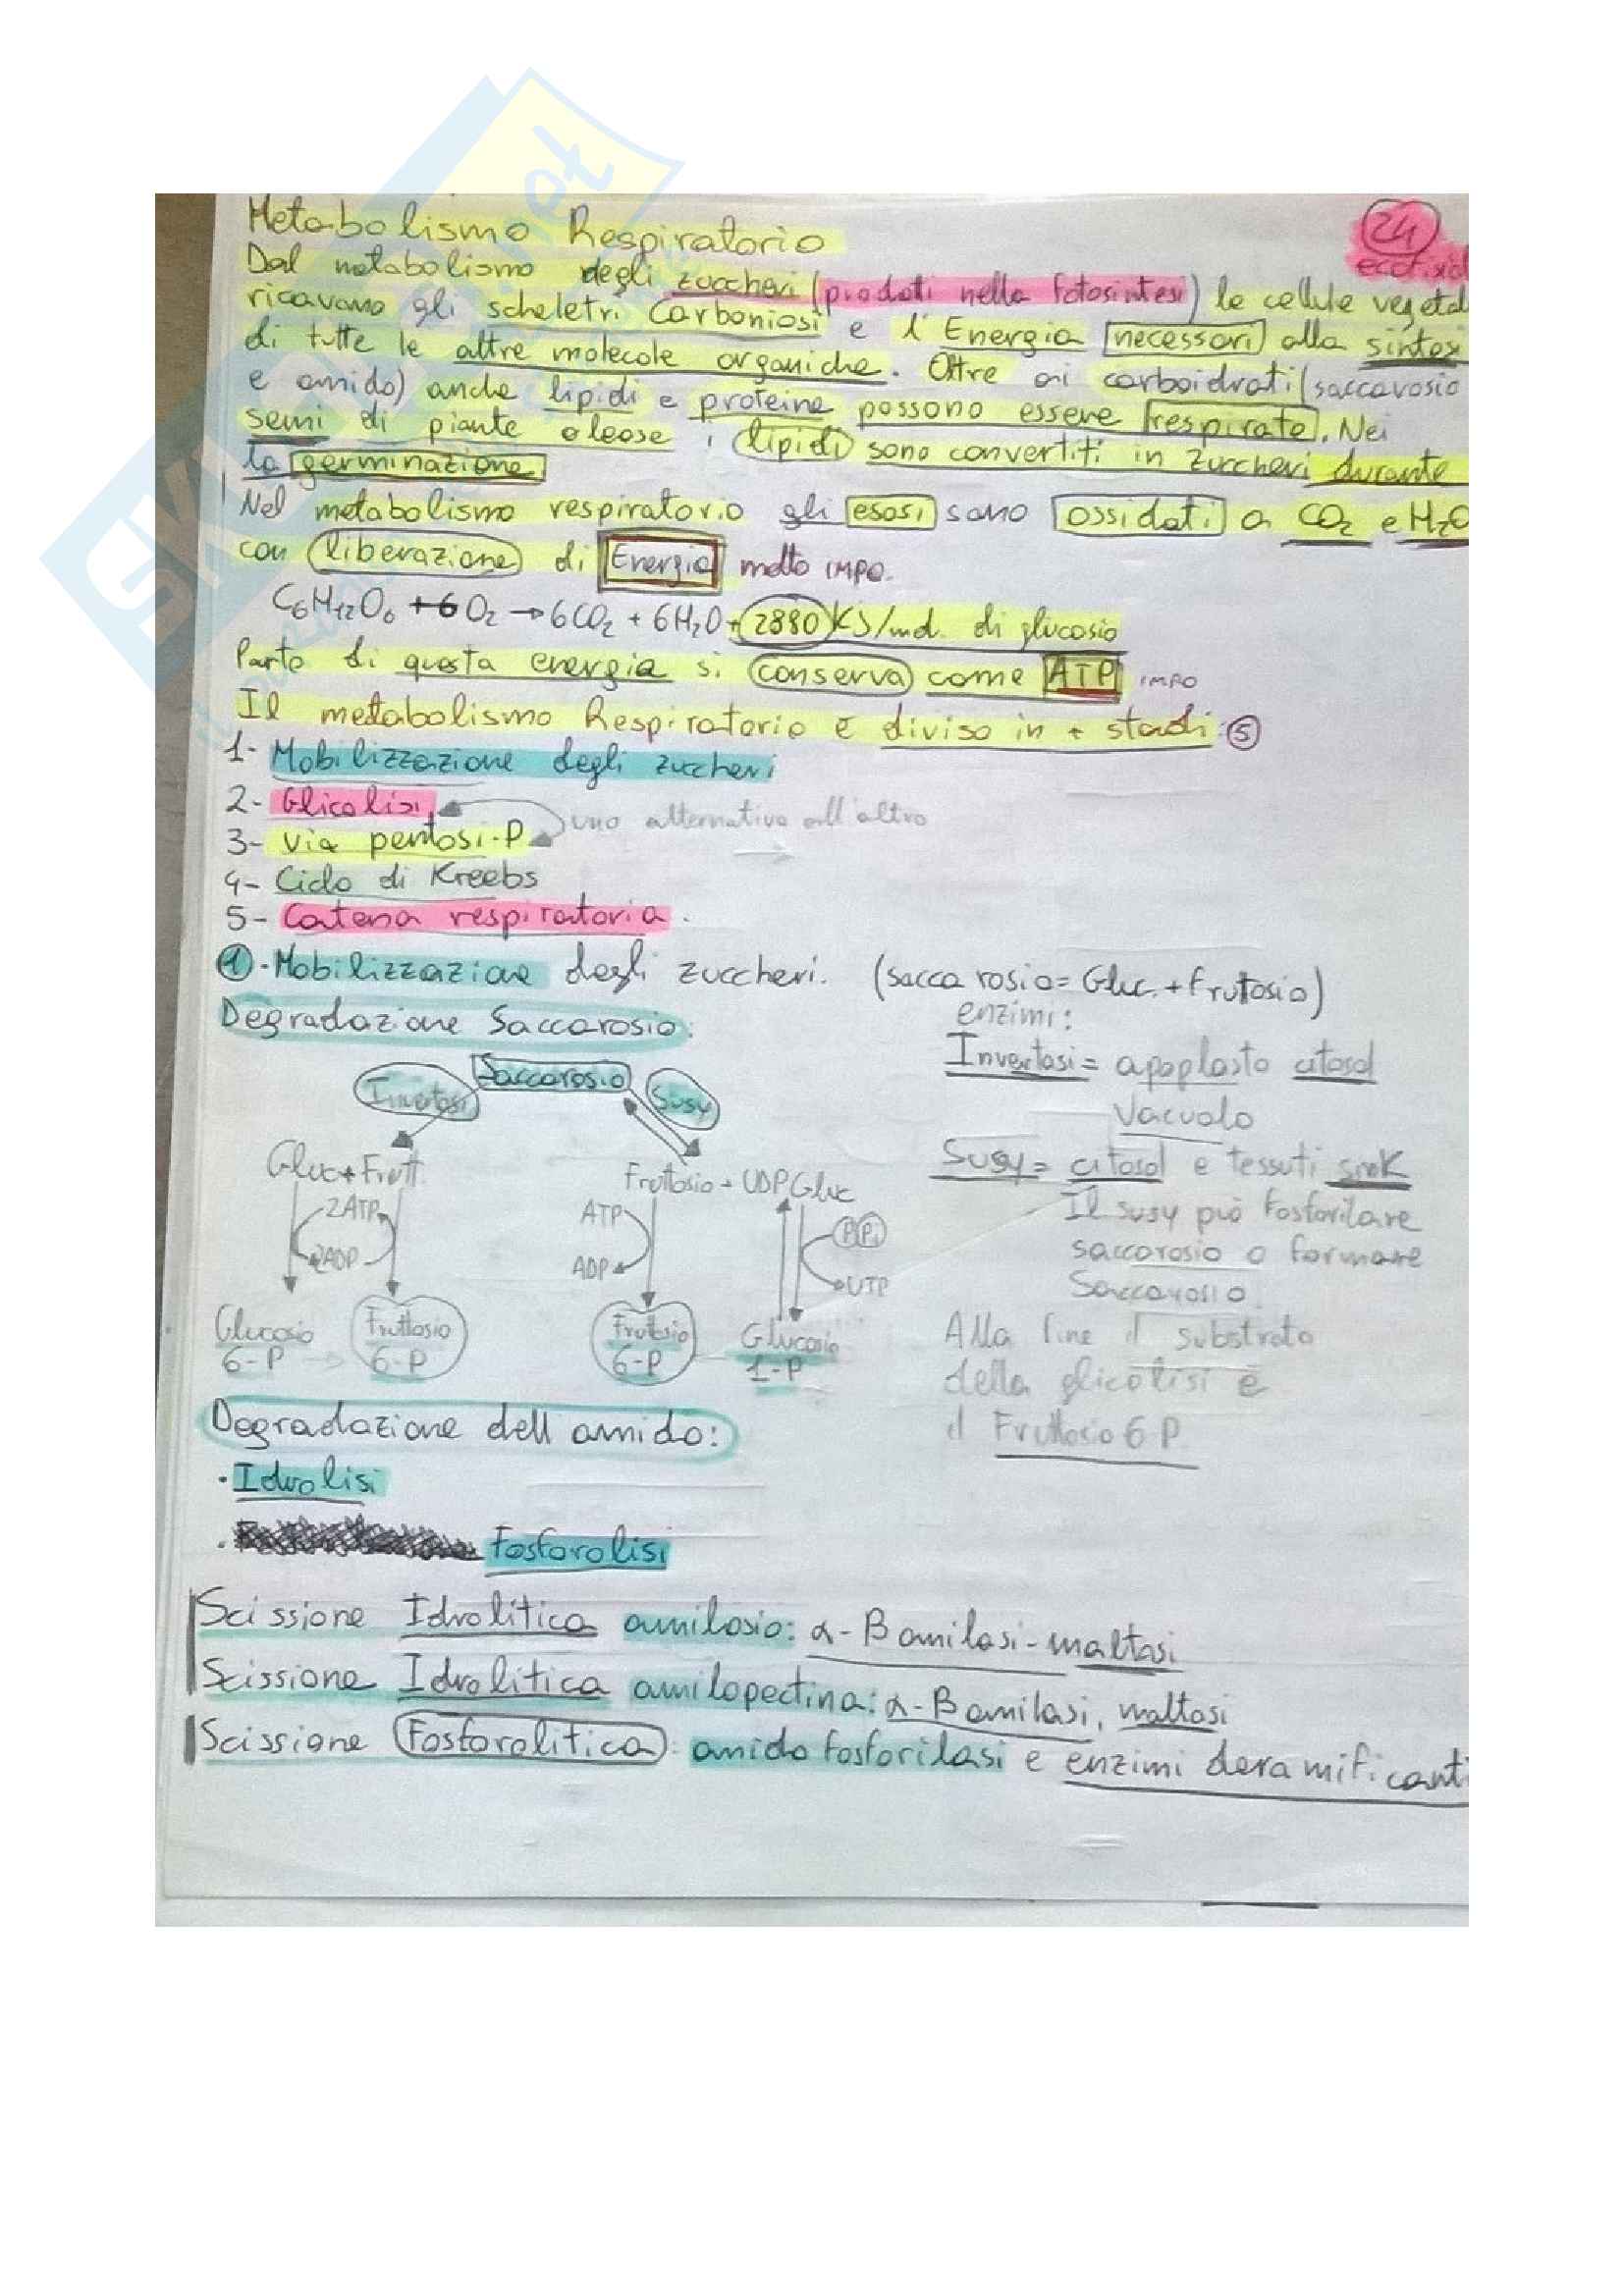 Metabolismo Respiratorio
24
Dal metabolismo degli zuccheri (prodoti nella fotosintesi) le cellule vegetal
ricavano gli scheletri Carboniosi e l'Energia necessari alla sintesi
di tutte le altre molecole organiche. Oltre ai carboidrati (saccarosio
e amido) anche lipidi e proteine possono essere respirate. Nei
semi di piante oleose i lipidi sono convertiti in zuccheri durante
la germinazione
Nel metabolismo respiratorio gli esosi sono ossidati a CO2 e H2O
con liberazione di Energia molto IMPO.
C6H12O6 + 6O2 → 6CO2 + 6H2O + 2880 KJ/mol. di glucosio
Parte di questa energia si conserva come ATP IMPO
Il metabolismo Respiratorio è diviso in + stadi: 5
1- Mobilizzazione degli zuccheri
2- Glicolisi
uno alternativo all'altro
3- via pentosi-P
4- Ciclo di Kreebs
5- Catena respiratoria.
1.-Mobilizzazione degli zuccheri. (saccarosio= Gluc.+Fruttosio)
Degradazione Saccarosio:
enzimi:
Invertasi= apoplasto citosol
Vacuolo
Saccarosio
Invertasi
Susy
Susy= citosol e tessuti sink
Il susy può fosforilare
saccarosio o formare
Saccarosio
Gluc+Frutt.
Fruttosio + UDPGluc
2ATP
2ADP
ATP
ADP
PPi
UTP
Glucosio 6-P
Fruttosio 6-P
Fruttosio 6-P
Glucosio 1-P
Alla fine il substrato
della glicolisi è
il Fruttosio 6 P
Degradazione dell amido:
· Idrolisi
· Fosforolisi
Scissione Idrolitica amilosio: α- B amilasi-maltasi
Scissione Idrolitica amilopectina: α-B amilasi, maltasi
Scissione Fosforolitica: amido fosforilasi e enzimi deramificanti